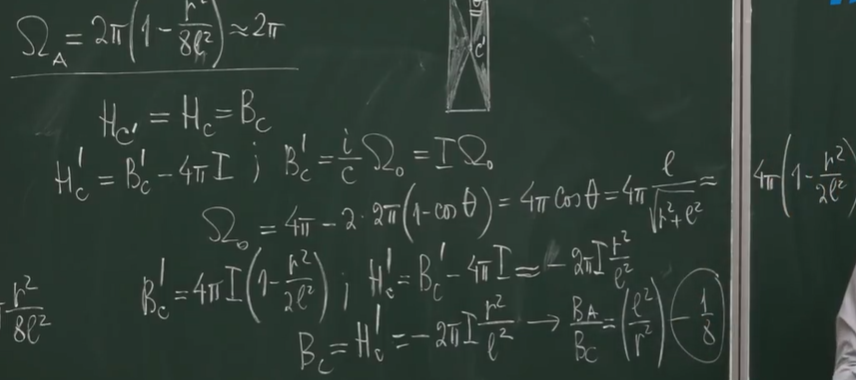 Ω_A = 2π(1 - r²/8ℓ²) ≈ 2π
c'
H_C' = H_C = B_C
H'_C = B'_C - 4πI ; B'_C = i/c Ω₀ = IΩ₀
Ω₀ = 4π - 2·2π(1 - cosθ) = 4π cosθ = 4π ℓ/√(r²+ℓ²) ≈ 4π(1 - r²/2ℓ²)
B'_C = 4πI(1 - r²/2ℓ²) ; H'_C = B'_C - 4πI ≈ -2πI r²/ℓ²
r²/8ℓ²
B_C = H'_C = -2πI r²/ℓ² → B_A/B_C = (ℓ²/r²) - 1/8